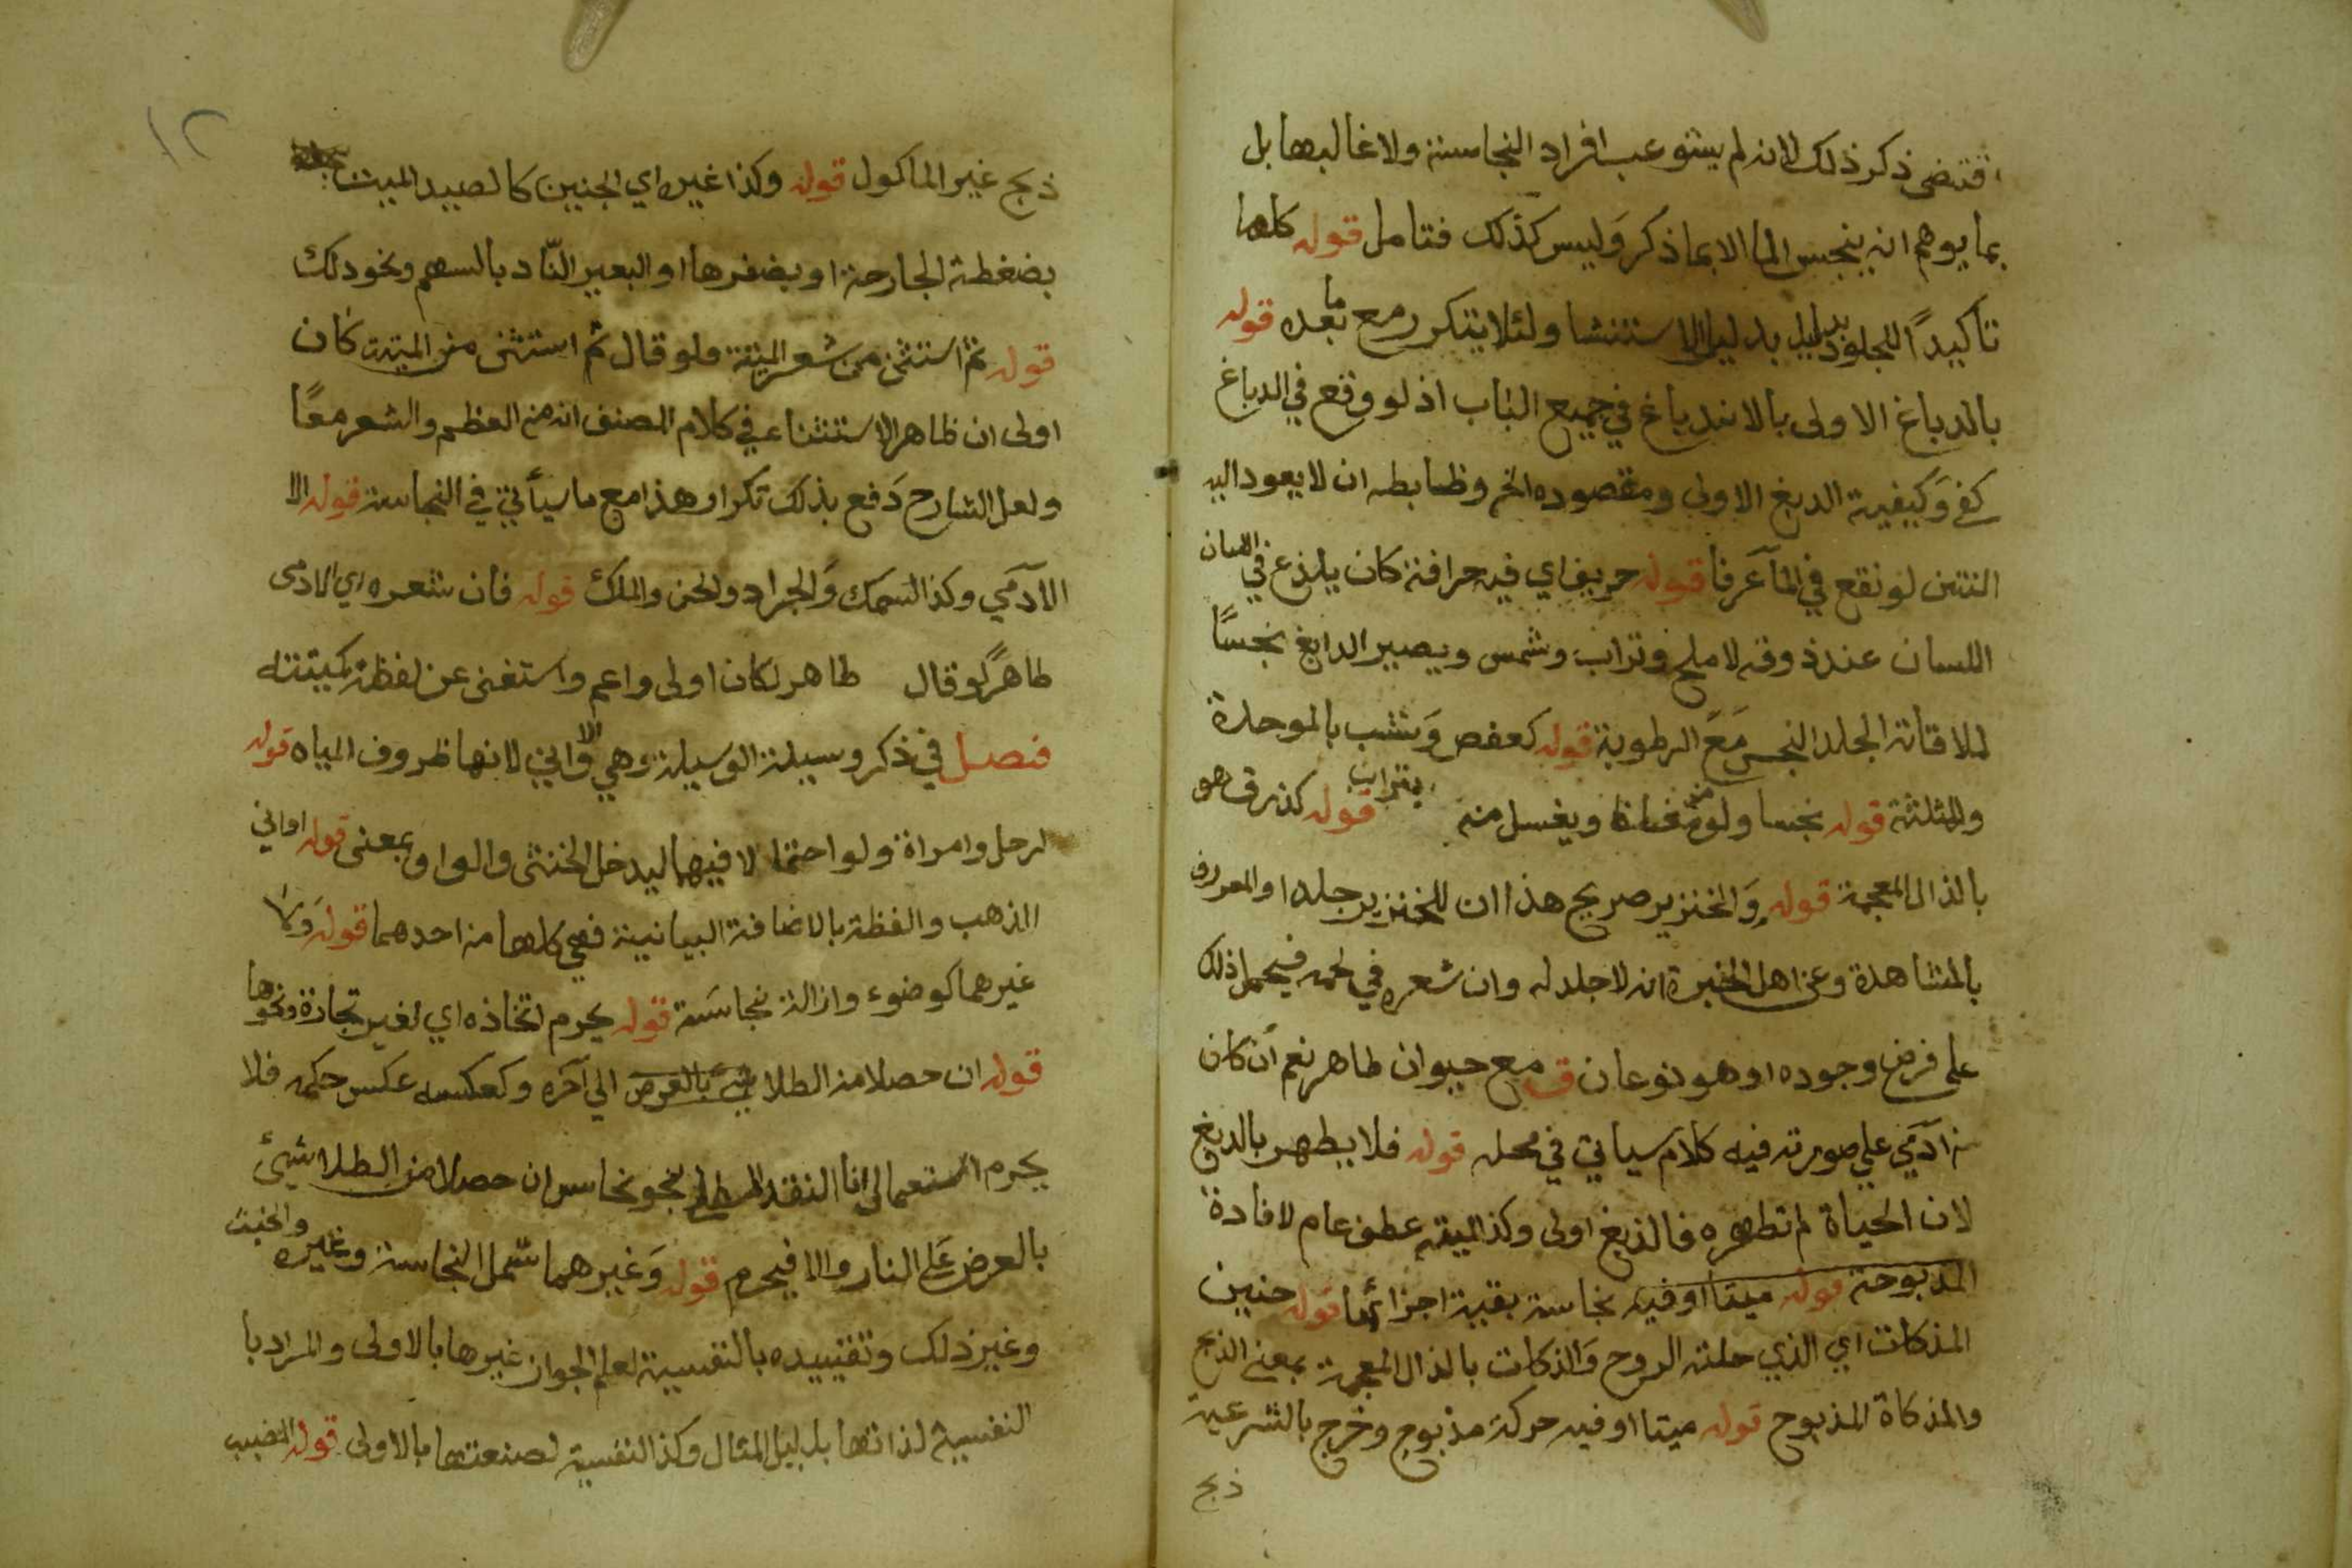 اقتضى ذكر ذلك لانه لم يستوعب افراد النجاسة ولا غالبها بل
بما يوهم انه ينجس الما الا بما ذكر وَليس كذلك فتامل قوله كلها
تاكيداً للجلود بدليل الاستثنا ولئلا يتكرر مع ما بعده قوله
بالدباغ الاولى بالاندباغ في جميع الباب اذ لو وقع في الدباغ
كفى وَكيفية الدبغ الاولى ومقصوده الخ وظابطه ان لا يعود اليه
النتن لو نقع في المآ عَرفا قوله حريف اي فيه حرافة كان يلذع في اللسان
اللسان عند ذوقه لا ملح وتراب وشمس ويصير الدابغ نجسًا
لملاقاته الجلد النجس مَعَ الرطوبة قوله كعفص وَشب بالموحدة
والمثلثة قوله نجسا ولو من مغلظ ويغسل منه بتراب قوله كذرق هو
بالذال المعجمة قوله وَالخنزير صريح هذا ان للخنزير جلدا والمعروف
بالمشاهدة وعن اهل الخبرة انه لا جلد له وان شعره في لحمه فيحمل ذلك
على فرض وجوده او هو نوعان ق مع حيوان طاهر نعم ان كان
من آدمي على صورته فيه كلام سياتي في محله قوله فلا يطهر بالدبغ
لان الحياة لم تطهره فالدبغ اولى وكذا الميتة عطف عام لافادة
المذبوحة قوله ميتا او فيه نجاسة بقية اجزائها قوله جنين
المذكات اي الذي حلته الروح وَالذكات بالذال المعجمة بمعنى الذبح
والمذكاة المذبوح قوله ميتا او فيه حركة مذبوح وخرج بالشرعية
ذبح
١٢
ذبح غير الماكول قوله وكذا غيره اي الجنين كالصيد الميت
بضغطة الجارحة او بضفرها او البعير النّاد بالسهم ونحو ذلك
قوله ثم استثنى من شعر الميتة فلو قال ثم استثنى من الميتة كان
اولى ان ظاهر الاستثناء في كلام المصنف انه من العظم والشعر معًا
ولعل الشارح دَفع بذلك تكرار هذا مع ما سيأتي في النجاسة قوله الا
الآدَمي وكذا السَمك وَالجراد والجن والملك قوله فان شعره اي الادمى
طاهرًا لو قال طاهر لكان اولى واعم واستغنى عن لفظة كميتته
فصل في ذكر وسيلة الوسيلة وهي الاواني لانها ظروف المياه قوله
لرجل وامراة ولو احتمالا فيهما ليدخل الخنثى والواو بمعنى قوله اواني
الذهب والفظة بالاضافة البيانية فهي كلها من احدهما قوله وَلا
غيرهما كوضوء وازالة نجاسَة قوله يحرم اتخاذه اي لغير تجارة ونحوها
قوله ان حصلا من الطلا شيئ بالعرض الي آخره وكعكسه عكس حكمه فلا
يحرم استعمال انا النقد المطلى بنحو نحاس ان حصلا من الطلا شيئ
بالعرض عَلى النار والا فيحرم قوله وَغيرهما شمل النجاسة وغيره والخبث
وغير ذلك وتقييده بالنفسية لعلم الجواز غيرها بالاولى والمراد با
النفسية لذاتها بدليل المثال وكذا النفسية لصنعتها بالاولى قوله المضبب